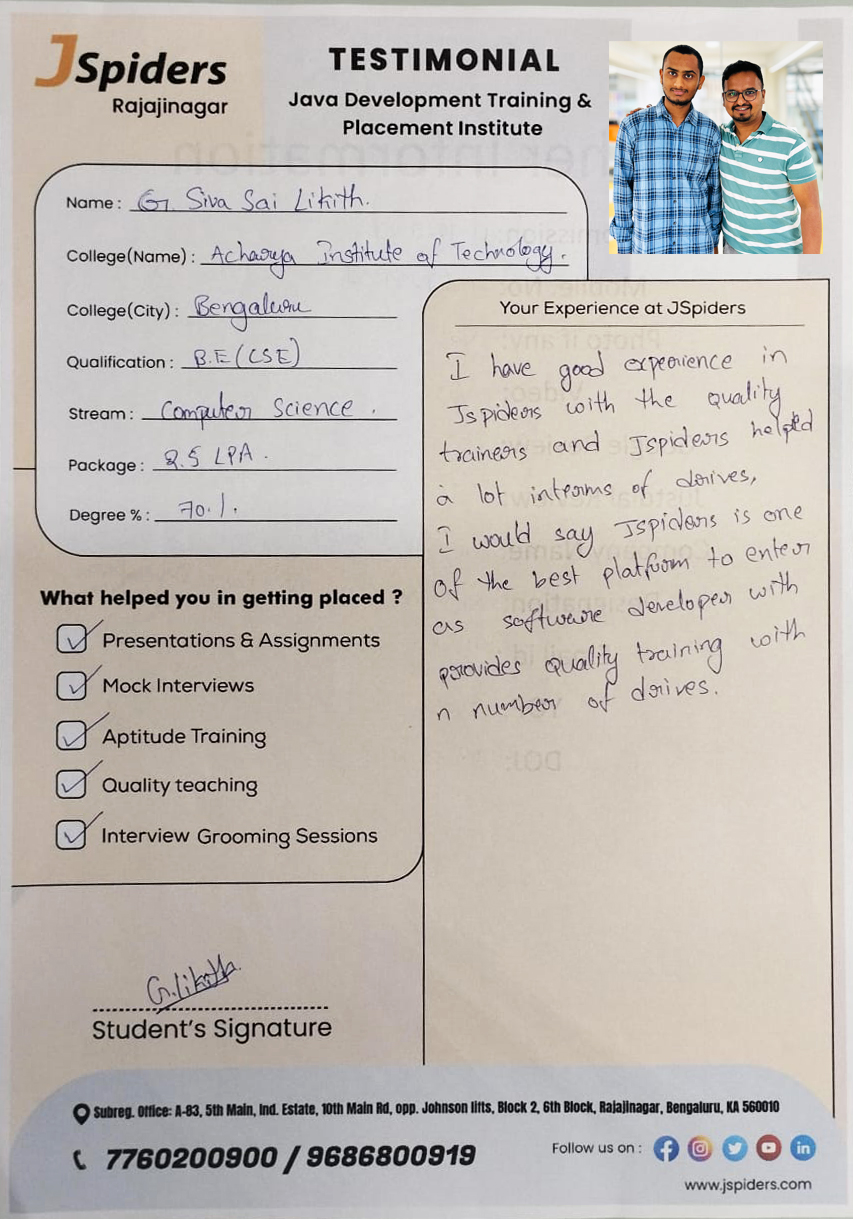 JSpiders
Rajajinagar
TESTIMONIAL
Java Development Training &
Placement Institute
Name : G. Siva Sai Likith.
College(Name) : Acharya Institute of Technology.
College(City) : Bengaluru
Qualification : B.E (CSE)
Stream : Computer Science .
Package : 2.5 LPA .
Degree % : 70 %.
What helped you in getting placed ?
Presentations & Assignments
Mock Interviews
Aptitude Training
Quality teaching
Interview Grooming Sessions
Your Experience at JSpiders
I have good experience in
Jspiders with the quality
trainers and Jspiders helped
a lot interms of drives,
I would say Jspiders is one
of the best platform to enter
as software developer with
provides quality training with
n number of drives.
G.Likith
Student's Signature
Subreg. Office: A-83, 5th Main, Ind. Estate, 10th Main Rd, opp. Johnson lifts, Block 2, 6th Block, Rajajinagar, Bengaluru, KA 560010
7760200900 / 9686800919
Follow us on :
www.jspiders.com